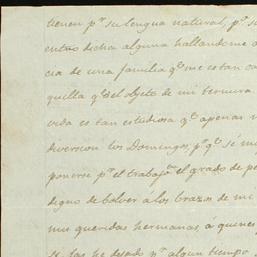 tienen pr. su lengua natural, pr. s
entrño dicha alguna hallandome a
cia de una familia qe. me es tan ca
quilla qe. del objeto de mi ternura
vida es tan estudiosa qe. apenas
diversion los Domingos, pr. qe. sé m
ponerse pr. el trabajo, el grado de pe
digno de bolver a los brazos de mi
mis queridas hermanas, á quienes
si las he dejado pr. algun tiempo